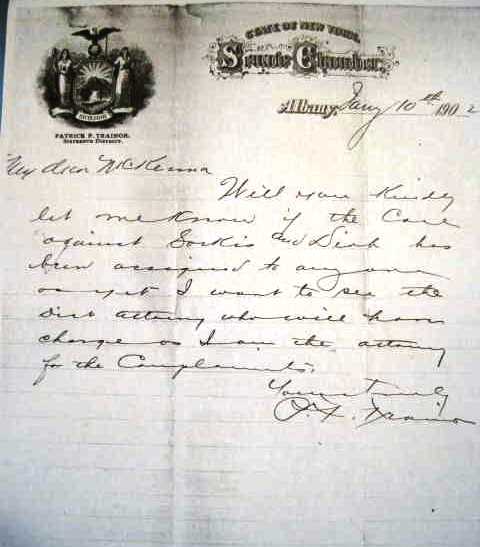 STATE OF NEW YORK.
Senate Chamber
EXCELSIOR
PATRICK F. TRAINOR,
SIXTEENTH DISTRICT.
Albany, Jany 10th 1902
My dear McKenna
Will you kindly
let me know if the Case
against and has
been assigned to anyone
as yet I want to see the
Dist attorney who will have
charge as I am the attorney
for the Complainants.
Yours truly
P. F. Trainor